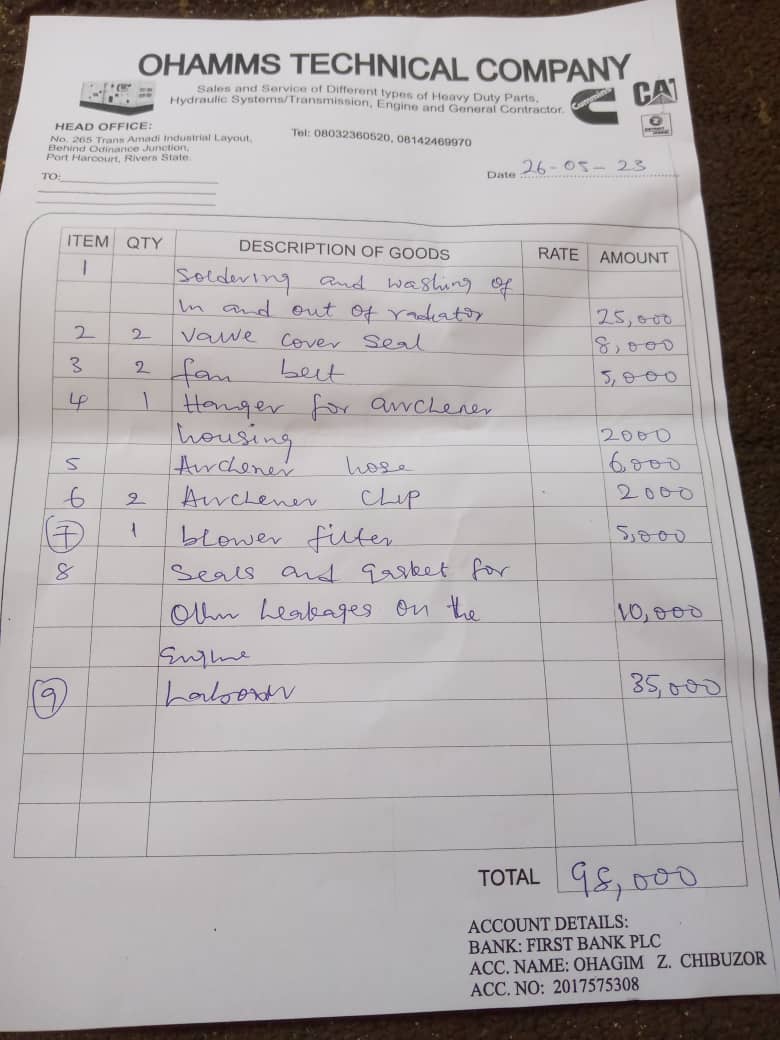 OHAMMS TECHNICAL COMPANY
Sales and Service of Different types of Heavy Duty Parts,
Hydraulic Systems/Transmission, Engine and General Contractor.
Cummins
CAT
HEAD OFFICE:
No. 265 Trans Amadi Industrial Layout,
Behind Odinance Junction,
Port Harcourt, Rivers State.
Tel: 08032360520, 08142469970
Date 26-05-23
TO:
ITEM QTY DESCRIPTION OF GOODS RATE AMOUNT
1 Soldering and washing of
in and out of radiator 25,000
2 2 Valve cover seal 8,000
3 2 fan belt 5,000
4 1 Hanger for aircliener
housing 2000
5 Aircliener hose 6,000
6 2 Aircliener CLIP 2000
7 1 blower filter 5,000
8 Seals and gasket for
Other Leakages on the 10,000
Engine
9 35,000
TOTAL 98,000
ACCOUNT DETAILS:
BANK: FIRST BANK PLC
ACC. NAME: OHAGIM Z. CHIBUZOR
ACC. NO: 2017575308